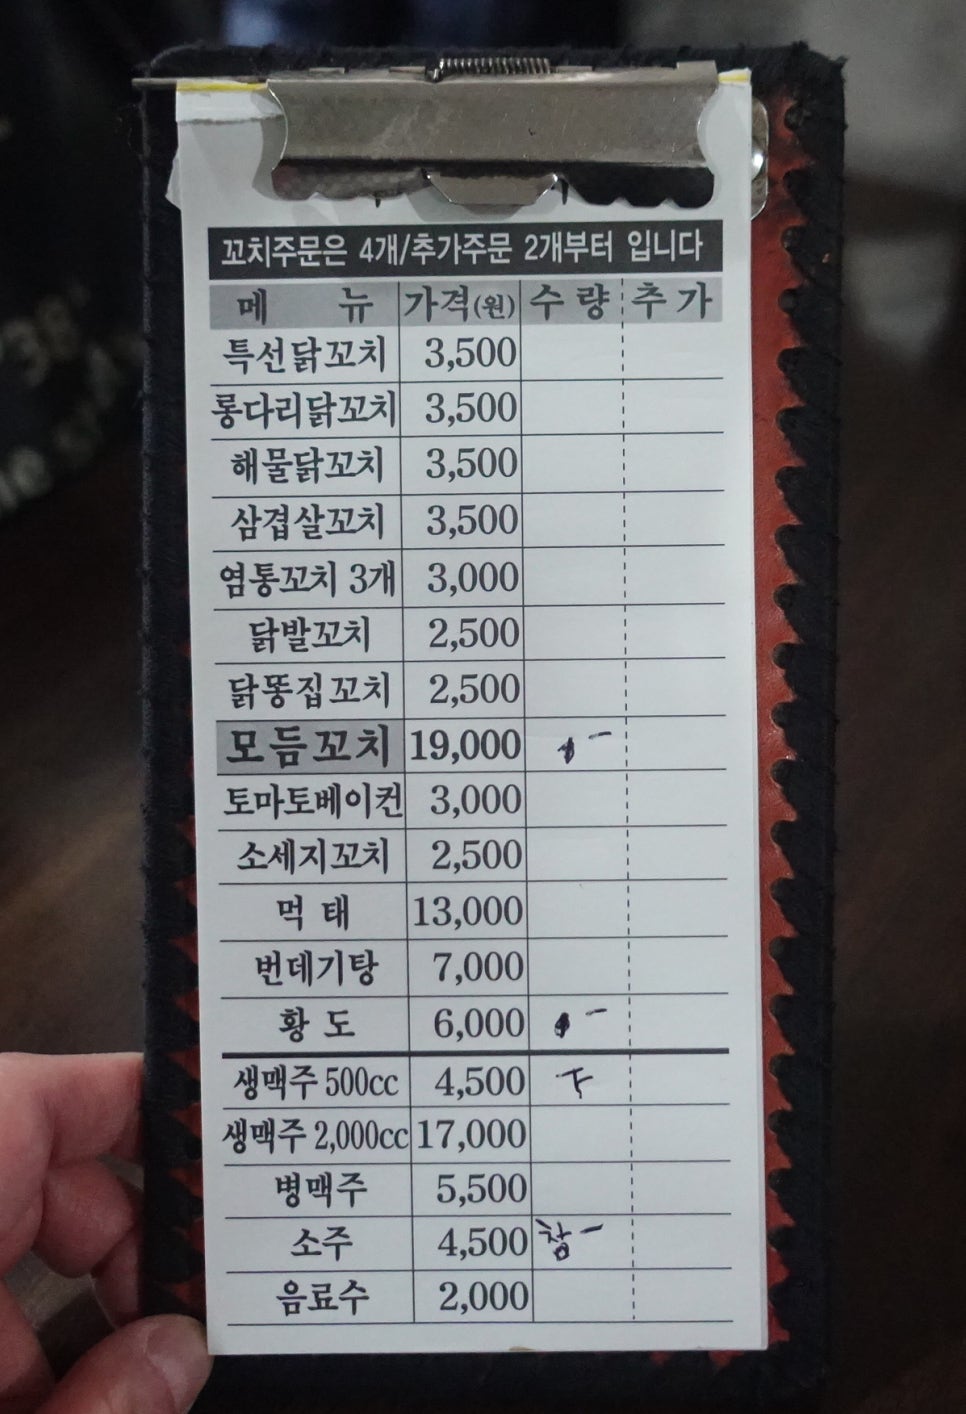 꼬치주문은 4개/추가주문 2개부터 입니다
메 뉴 가격(원) 수량 추가
특선닭꼬치 3,500
롱다리닭꼬치 3,500
해물닭꼬치 3,500
삼겹살꼬치 3,500
염통꼬치 3개 3,000
닭발꼬치 2,500
닭똥집꼬치 2,500
모듬꼬치 19,000
토마토베이컨 3,000
소세지꼬치 2,500
먹 태 13,000
번데기탕 7,000
황 도 6,000
생맥주 500cc 4,500
생맥주 2,000cc 17,000
병맥주 5,500
소주 4,500 참
음료수 2,000